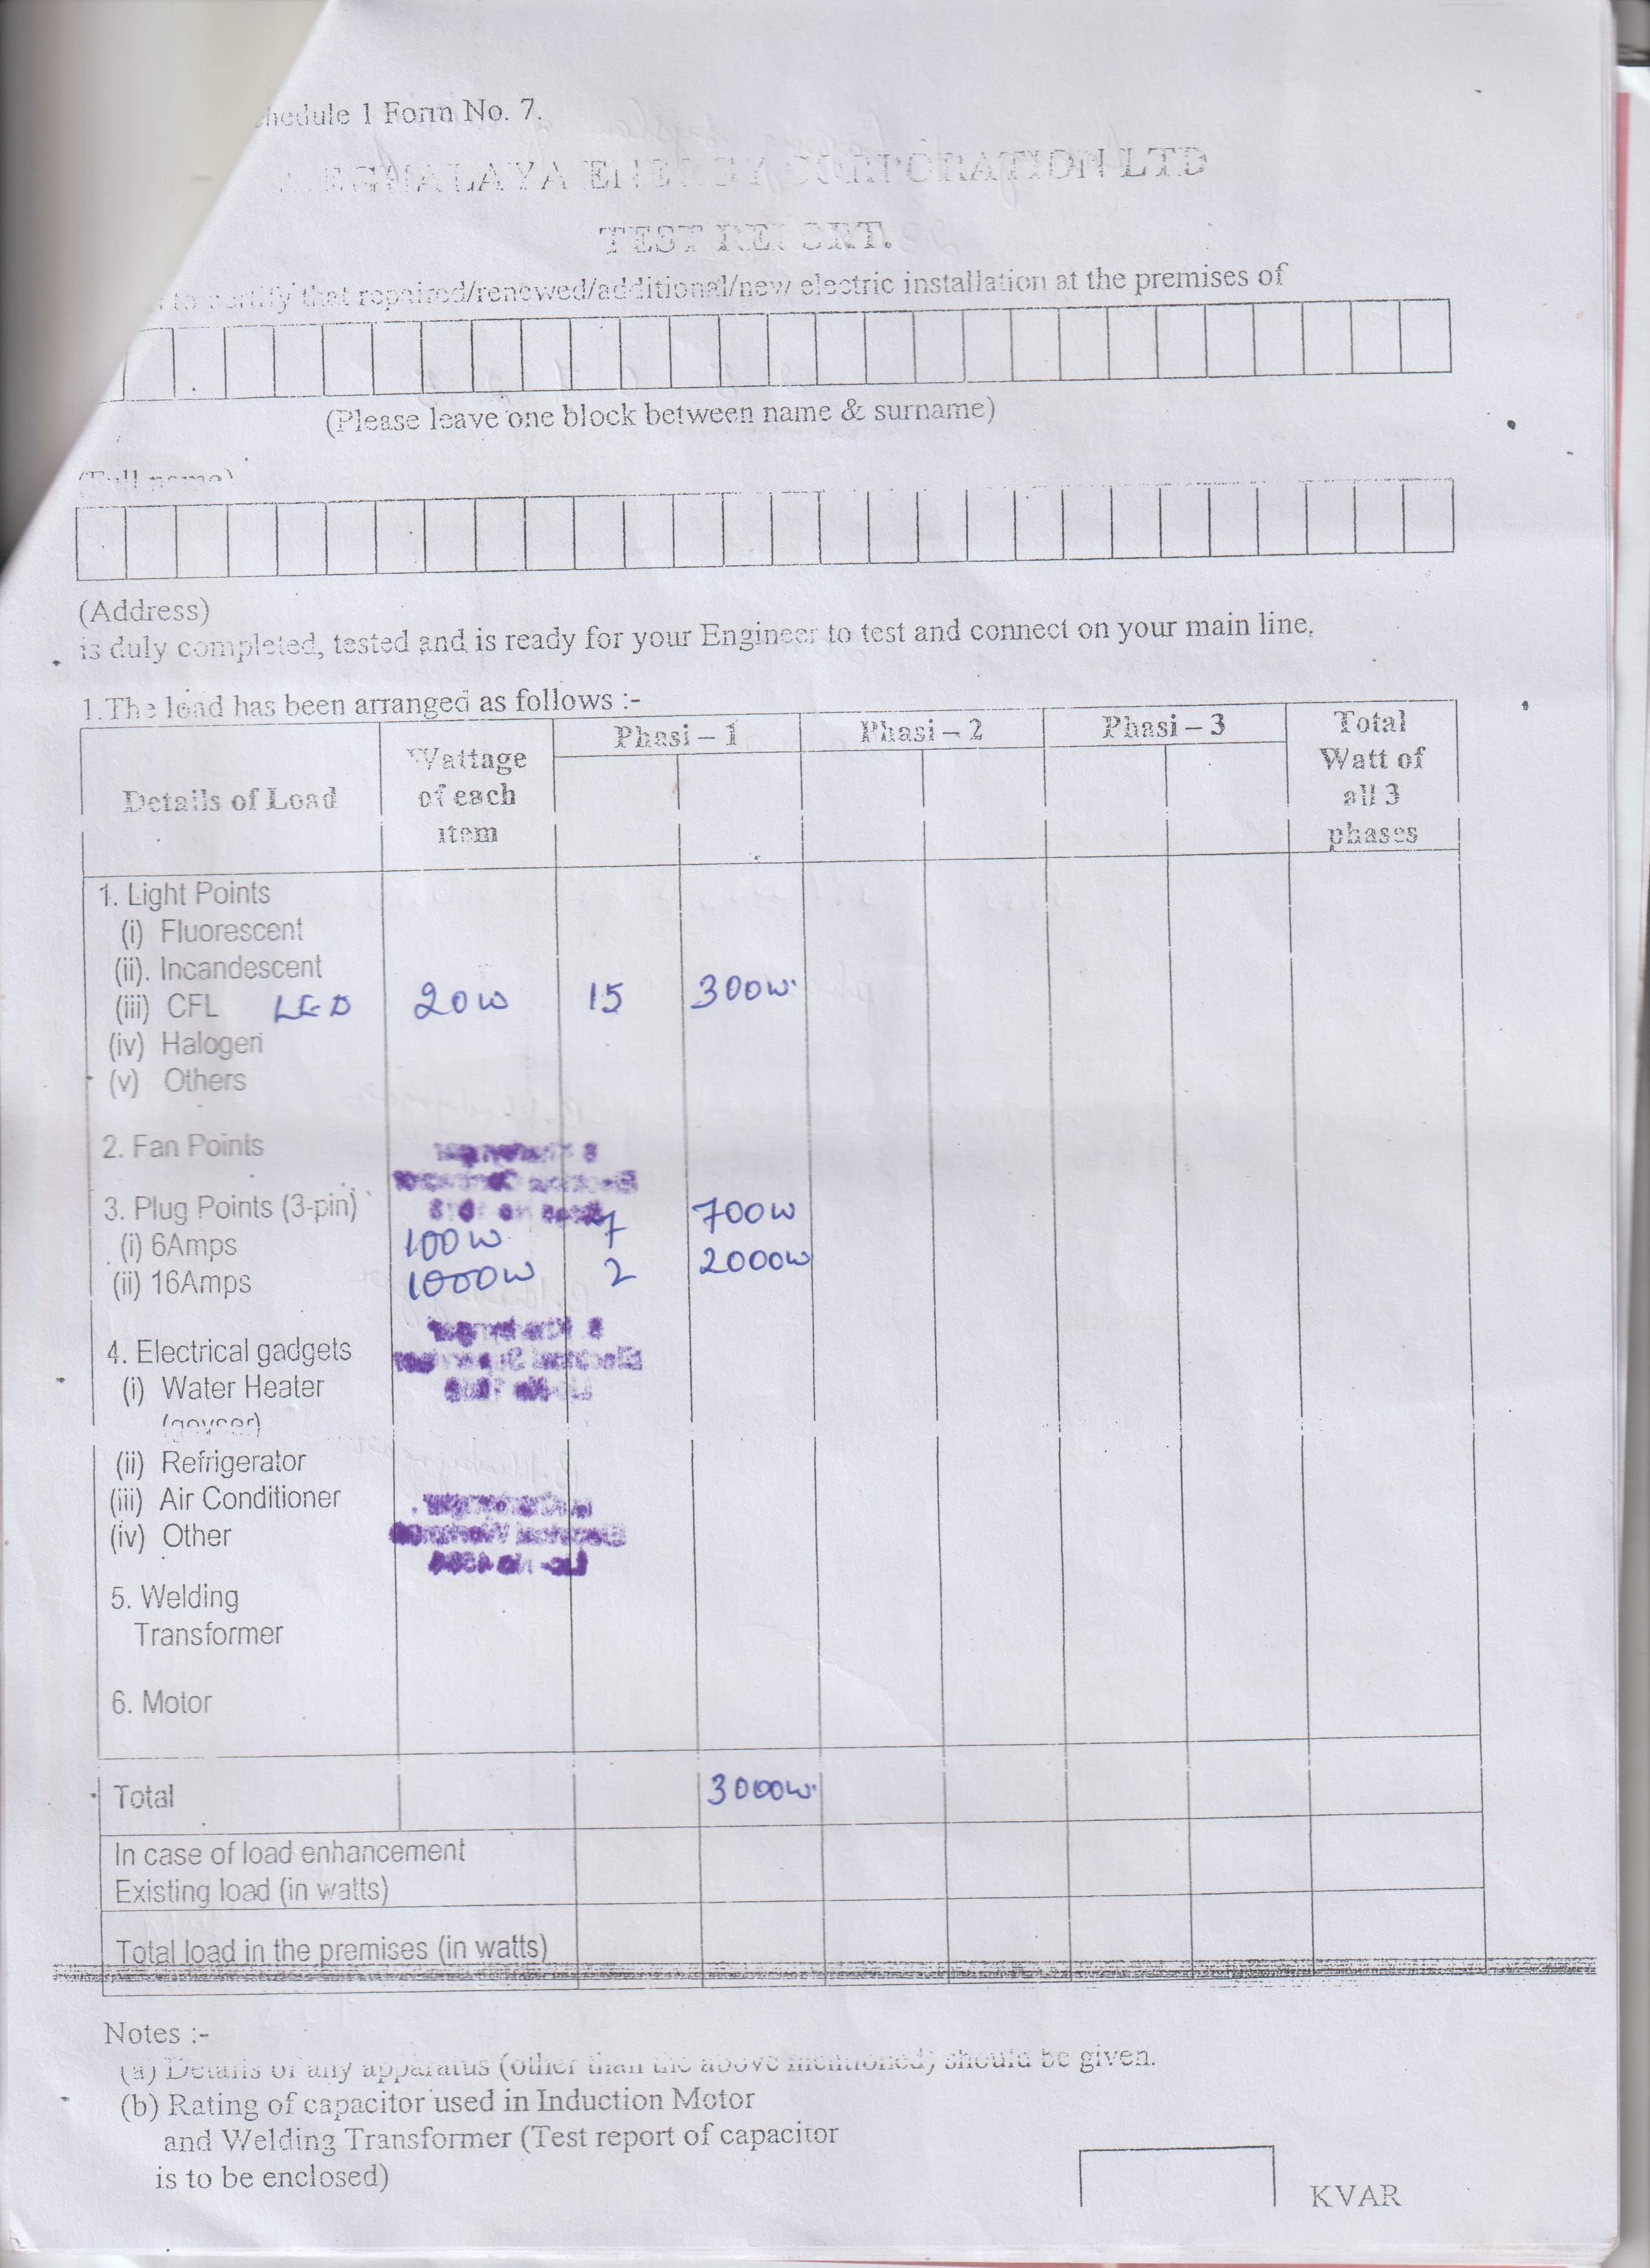 hedule 1 Form No. 7.
MEGHALAYA ENERGY CORPORATION LTD
TEST REPORT.
s to certify that repaired/renewed/additional/new electric installation at the premises of
(Please leave one block between name & surname)
(Full name)
(Address)
is duly completed, tested and is ready for your Engineer to test and connect on your main line.
1.The load has been arranged as follows :-
Details of Load Wattage of each item Phasi – 1 Phasi – 2 Phasi – 3 Total Watt of all 3 phases
1. Light Points
(i) Fluorescent
(ii). Incandescent
(iii) CFL LED 20W 15 300W
(iv) Halogen
(v) Others
2. Fan Points
3. Plug Points (3-pin)
(i) 6Amps 100W 7 700W
(ii) 16Amps 1000W 2 2000W
4. Electrical gadgets
(i) Water Heater
(geyser)
(ii) Refrigerator
(iii) Air Conditioner
(iv) Other
5. Welding
Transformer
6. Motor
Total 3000W
In case of load enhancement
Existing load (in watts)
Total load in the premises (in watts)
Notes :-
(a) Details of any apparatus (other than the above mentioned) should be given.
(b) Rating of capacitor used in Induction Motor
and Welding Transformer (Test report of capacitor
is to be enclosed)
KVAR